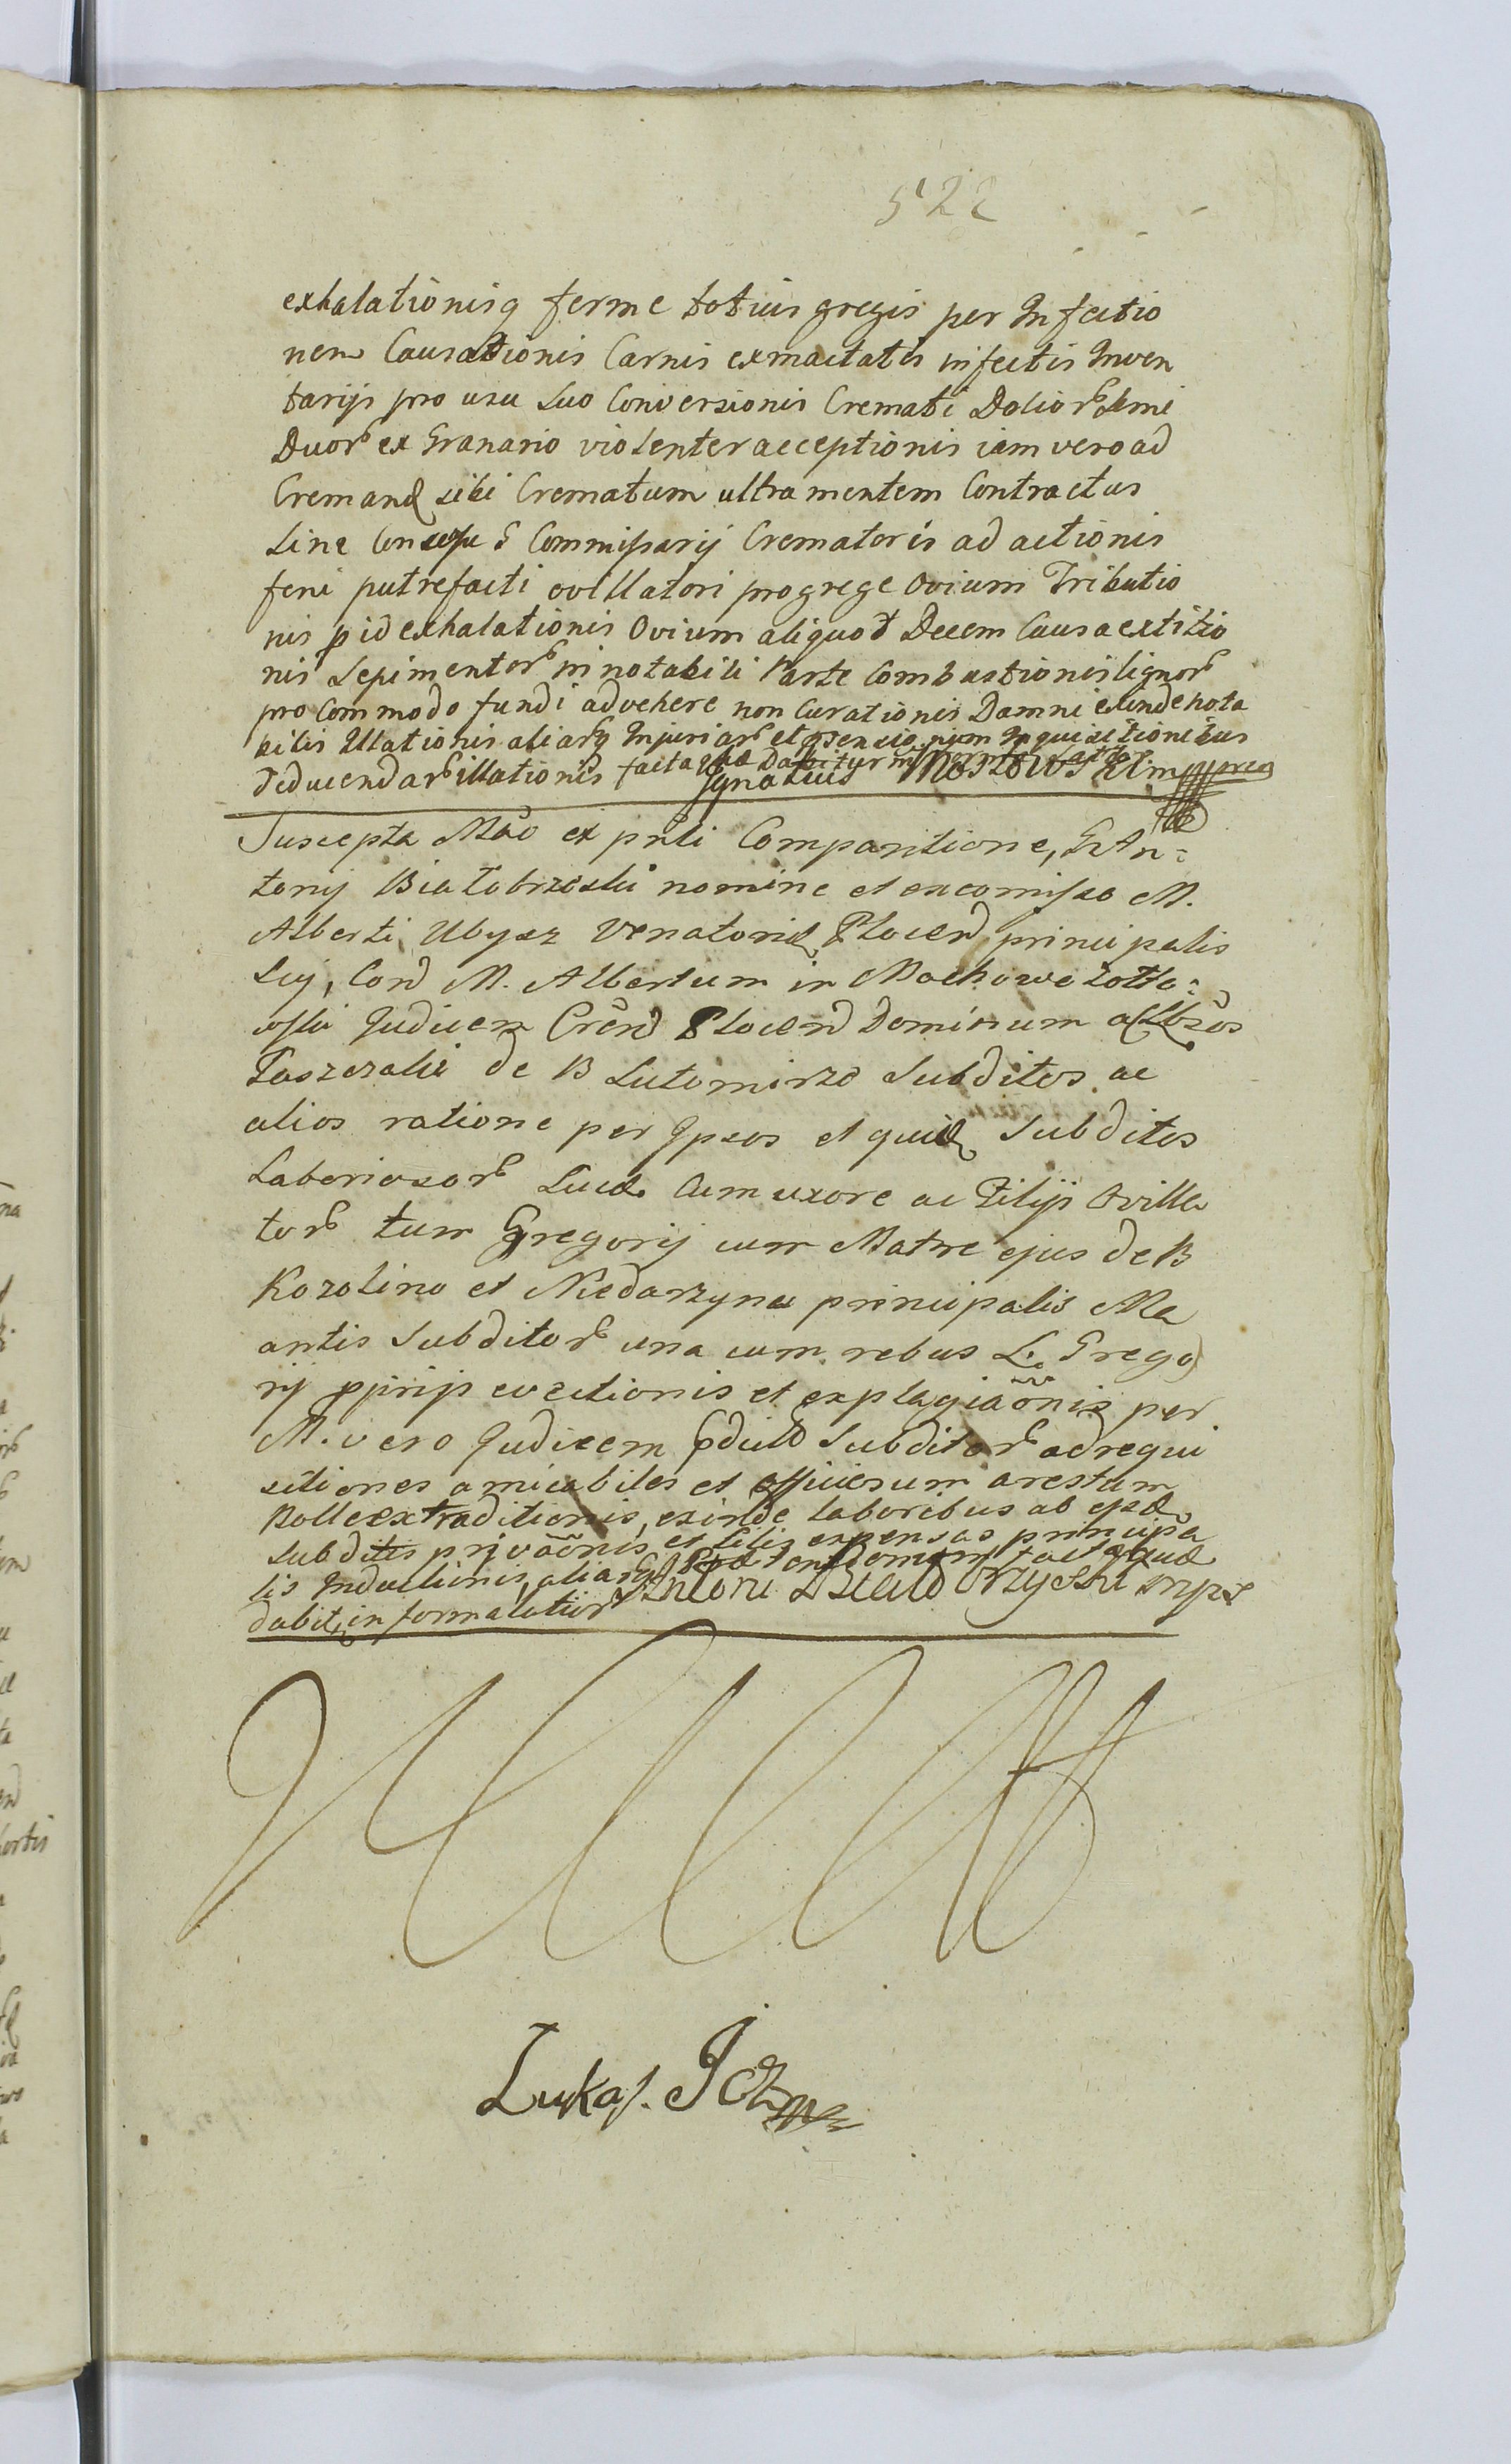 522
exhalationisq ferme totius gregis per Infectio
nem Causationis Carnis exmactatis infectis Inven
tarijs pro usu suo Conversionis Cremati Dolior
Duor ex Granario violenter acceptionis iam vero ad
Cremand sibi Crematum ultra mentem Contractus
sine Commissarij Crematoris ad actionis
feni putrefacti ovillatori pro grege Ovium Tributio
nis p id exhalationis Ovium aliquot Decem Causa extitio
nis Sepimentor in notabili Parte Combustionis lignor
pro Commodo fundi advehere non Curationis Damni exinde nota
bilis Illationis aliarq Injuriar et Inquisitionibus
deducendar illationis facta Dabitur in
Ignatius Mostowski mppria
Suscepta Mao ex pnti Comparitione, G An=
tonij Białobrzeski nomine et ex comisso M.
Alberti Ubysz Venatorid Plocen principalis
Suj, Con M. Albertum in Machowe Zotto=
wski Judicem Plocen Dominum
Taszczalie de B Lutomirzo Subditos ac
alios ratione per Ipsos et quid Subditos
Laboriosor Lucae Cum uxore ac Filijs Ovilla
tor tum Gregorij cum Matre ejus de B
Kozolino et Niedarzyna principalis Ma
antis Subditor una cum rebus L. Grego
rij pprijs evectionis et explagiaonis per
M. vero Judicem pdict Subditor ad requi
sitiones amicabiles et officiosum arestum
Nolle extraditionis, exinde laboribus ab ejsd
Subditis privaonis, et litis expensas principa
lis Inductionis, aliarq
dabit, in forma latior Antoni
Łukasz